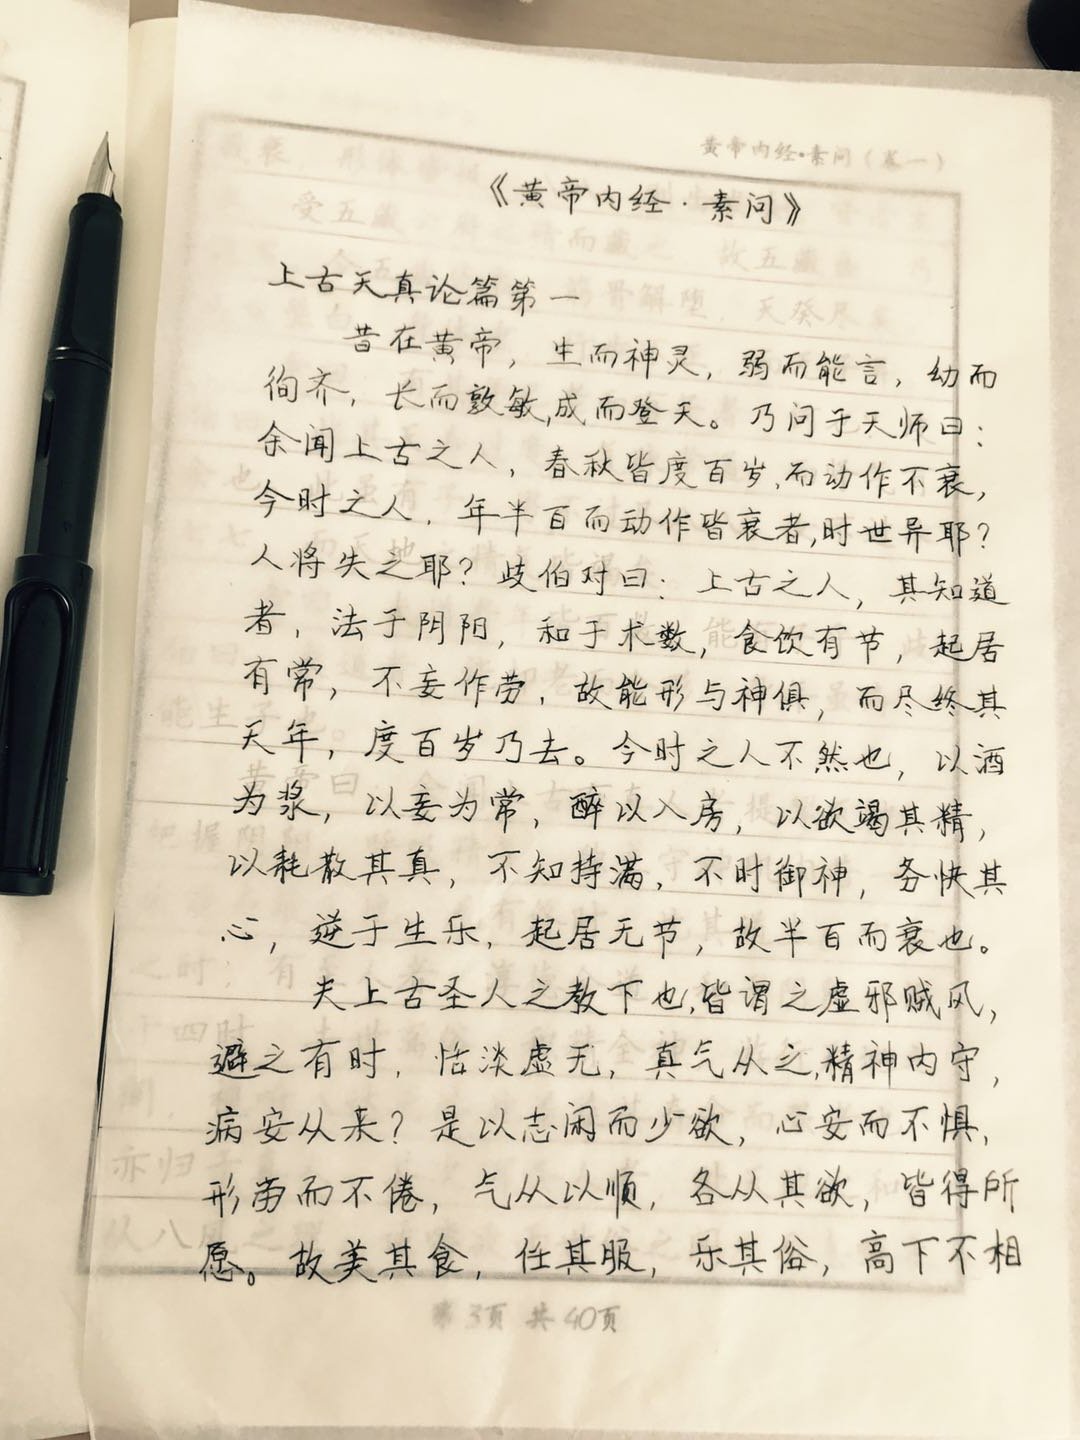 黄帝内经•素问（卷一）
《黄帝内经·素问》
上古天真论篇第一
昔在黄帝，生而神灵，弱而能言，幼而
徇齐，长而敦敏，成而登天。乃问于天师曰：
余闻上古之人，春秋皆度百岁，而动作不衰，
今时之人，年半百而动作皆衰者，时世异耶？
人将失之耶？歧伯对曰：上古之人，其知道
者，法于阴阳，和于术数，食饮有节，起居
有常，不妄作劳，故能形与神俱，而尽终其
天年，度百岁乃去。今时之人不然也，以酒
为浆，以妄为常，醉以入房，以欲竭其精，
以耗散其真，不知持满，不时御神，务快其
心，逆于生乐，起居无节，故半百而衰也。
夫上古圣人之教下也，皆谓之虚邪贼风，
避之有时，恬淡虚无，真气从之，精神内守，
病安从来？是以志闲而少欲，心安而不惧，
形劳而不倦，气从以顺，各从其欲，皆得所
愿。故美其食，任其服，乐其俗，高下不相
第3页 共40页